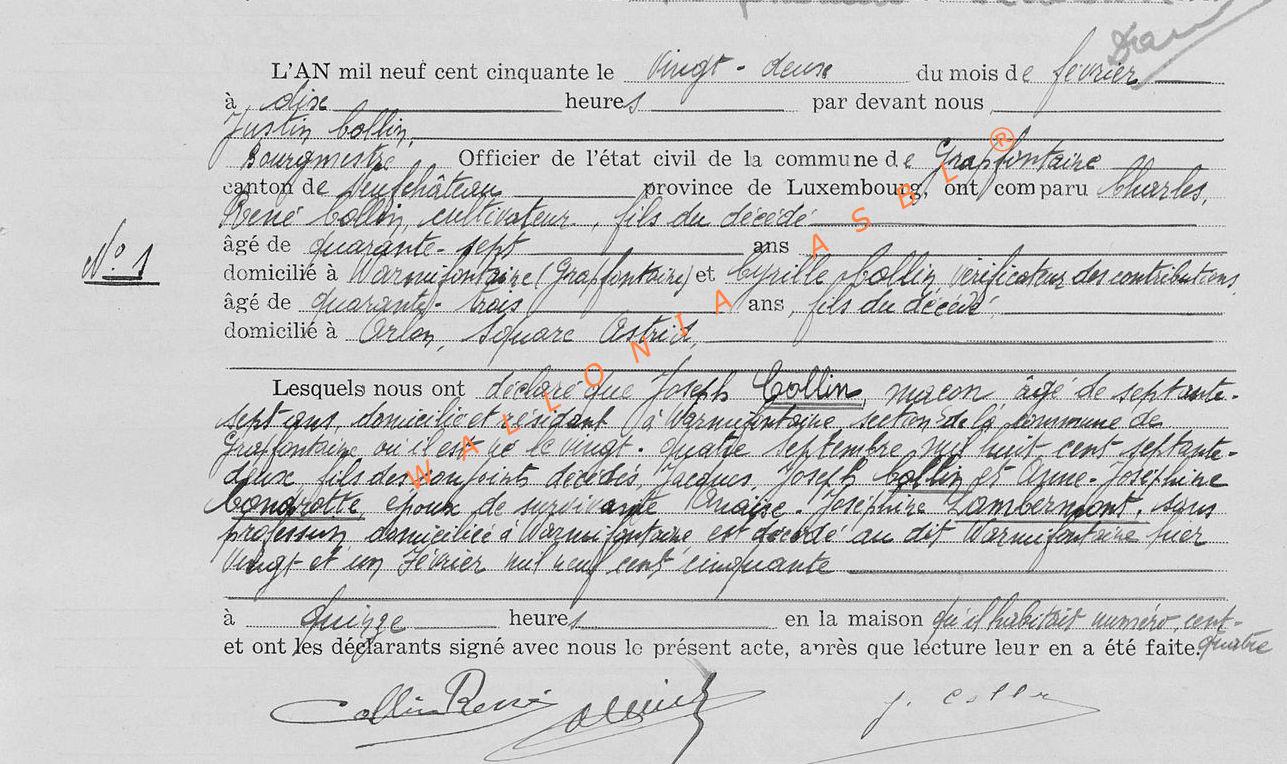 L'AN mil neuf cent cinquante le vingt-deux du mois de février
à dix heures par devant nous
Justin Collin,
Bourgmestre Officier de l'état civil de la commune de Grapfontaine
canton de Neufchâteau province de Luxembourg, ont comparu Charles,
René Collin, cultivateur, fils du décédé
âgé de quarante-sept ans
N° 1
domicilié à Warmifontaine (Grapfontaine) et Cyrille Collin vérificateur des contributions,
âgé de quarante-trois ans, fils du décédé,
domicilié à Arlon, Square Astrid,
Lesquels nous ont déclaré que Joseph Collin, maçon, âgé de septante-
sept ans, domicilié et résidant à Warmifontaine, section de la commune de
Grapfontaine où il est né le vingt-quatre septembre mil huit cent septante-
deux fils des conjoints décédés, Jacques, Joseph Collin et Anne-Joséphine
époux de survivante Joséphine Lambermont, sans
profession domiciliée à Warmifontaine est décédé au dit Warmifontaine hier
Vingt et un Février mil neuf cent cinquante
à quinze heures en la maison qu'il habitait numéro, cent-
quatre
et ont les déclarants signé avec nous le présent acte, après que lecture leur en a été faite.
Collin René
J. Collin
WALLONIA ASBL ®